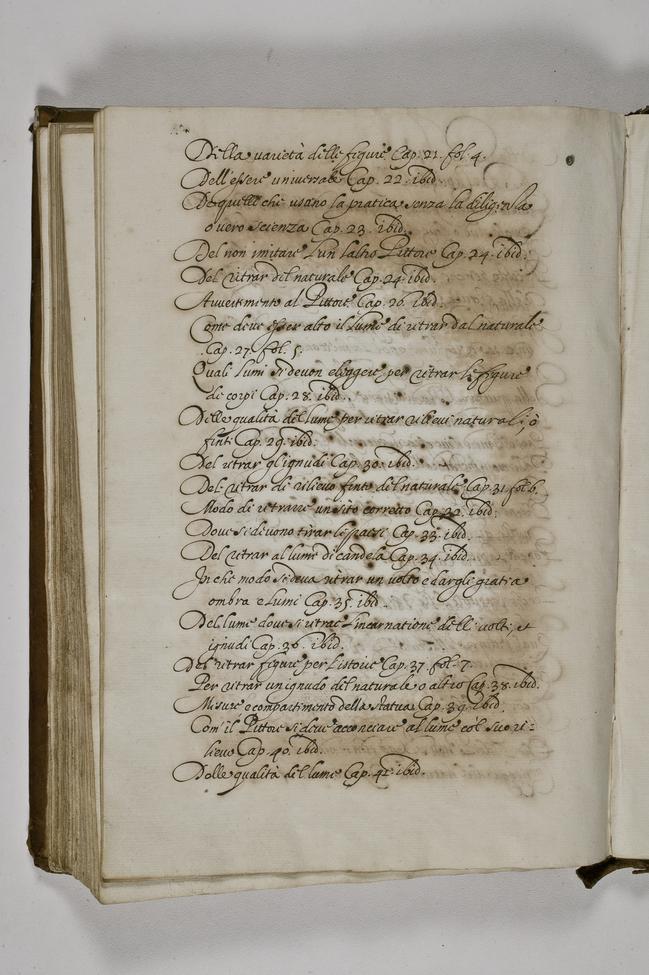 Della varietà delle figure Cap. 21. fol. 4.
Dell'essere universale Cap. 22. ibid.
De quelli che usano la pratica senza la diligenza
o vero scienza Cap. 23. ibid.
Del non imitare l'un l'altro Pittore Cap. 24. ibid.
Del ritrar dal naturale Cap. 24. ibid.
Avvertimento al Pittore Cap. 26. ibid.
Come deve esser alto il lume di ritrar dal naturale
Cap. 27. fol. 5.
Quali lumi si devon eleggere per ritrar le figure
de corpi Cap. 28. ibid.
Delle qualità del lume per ritrar rilievi naturali, ò
finti Cap. 29. ibid.
Del ritrar gl'ignudi Cap. 30. ibid.
Del ritrar di rilievo finto del naturale Cap. 31. fol. 6.
Modo di ritrarre un sito corretto Cap. 32. ibid.
Dove si devono tirar li paesi Cap. 33. ibid.
Del ritrar al lume di candela Cap. 34. ibid.
In che modo si deva ritrar un volto e dargli gratia
ombra e lumi Cap. 35. ibid.
Del lume dove si ritrae l'incarnatione delli volti, et
ignudi Cap. 36. ibid.
Del ritrar figure per l'istorie Cap. 37. fol. 7.
Per ritrar un ignudo del naturale o altro Cap. 38. ibid.
Misure e compartimento della statua Cap. 39. ibid.
Com' il Pittore si deve acconciare al lume col suo ri-
lievo Cap. 40. ibid.
Delle qualità del lume Cap. 41. ibid.